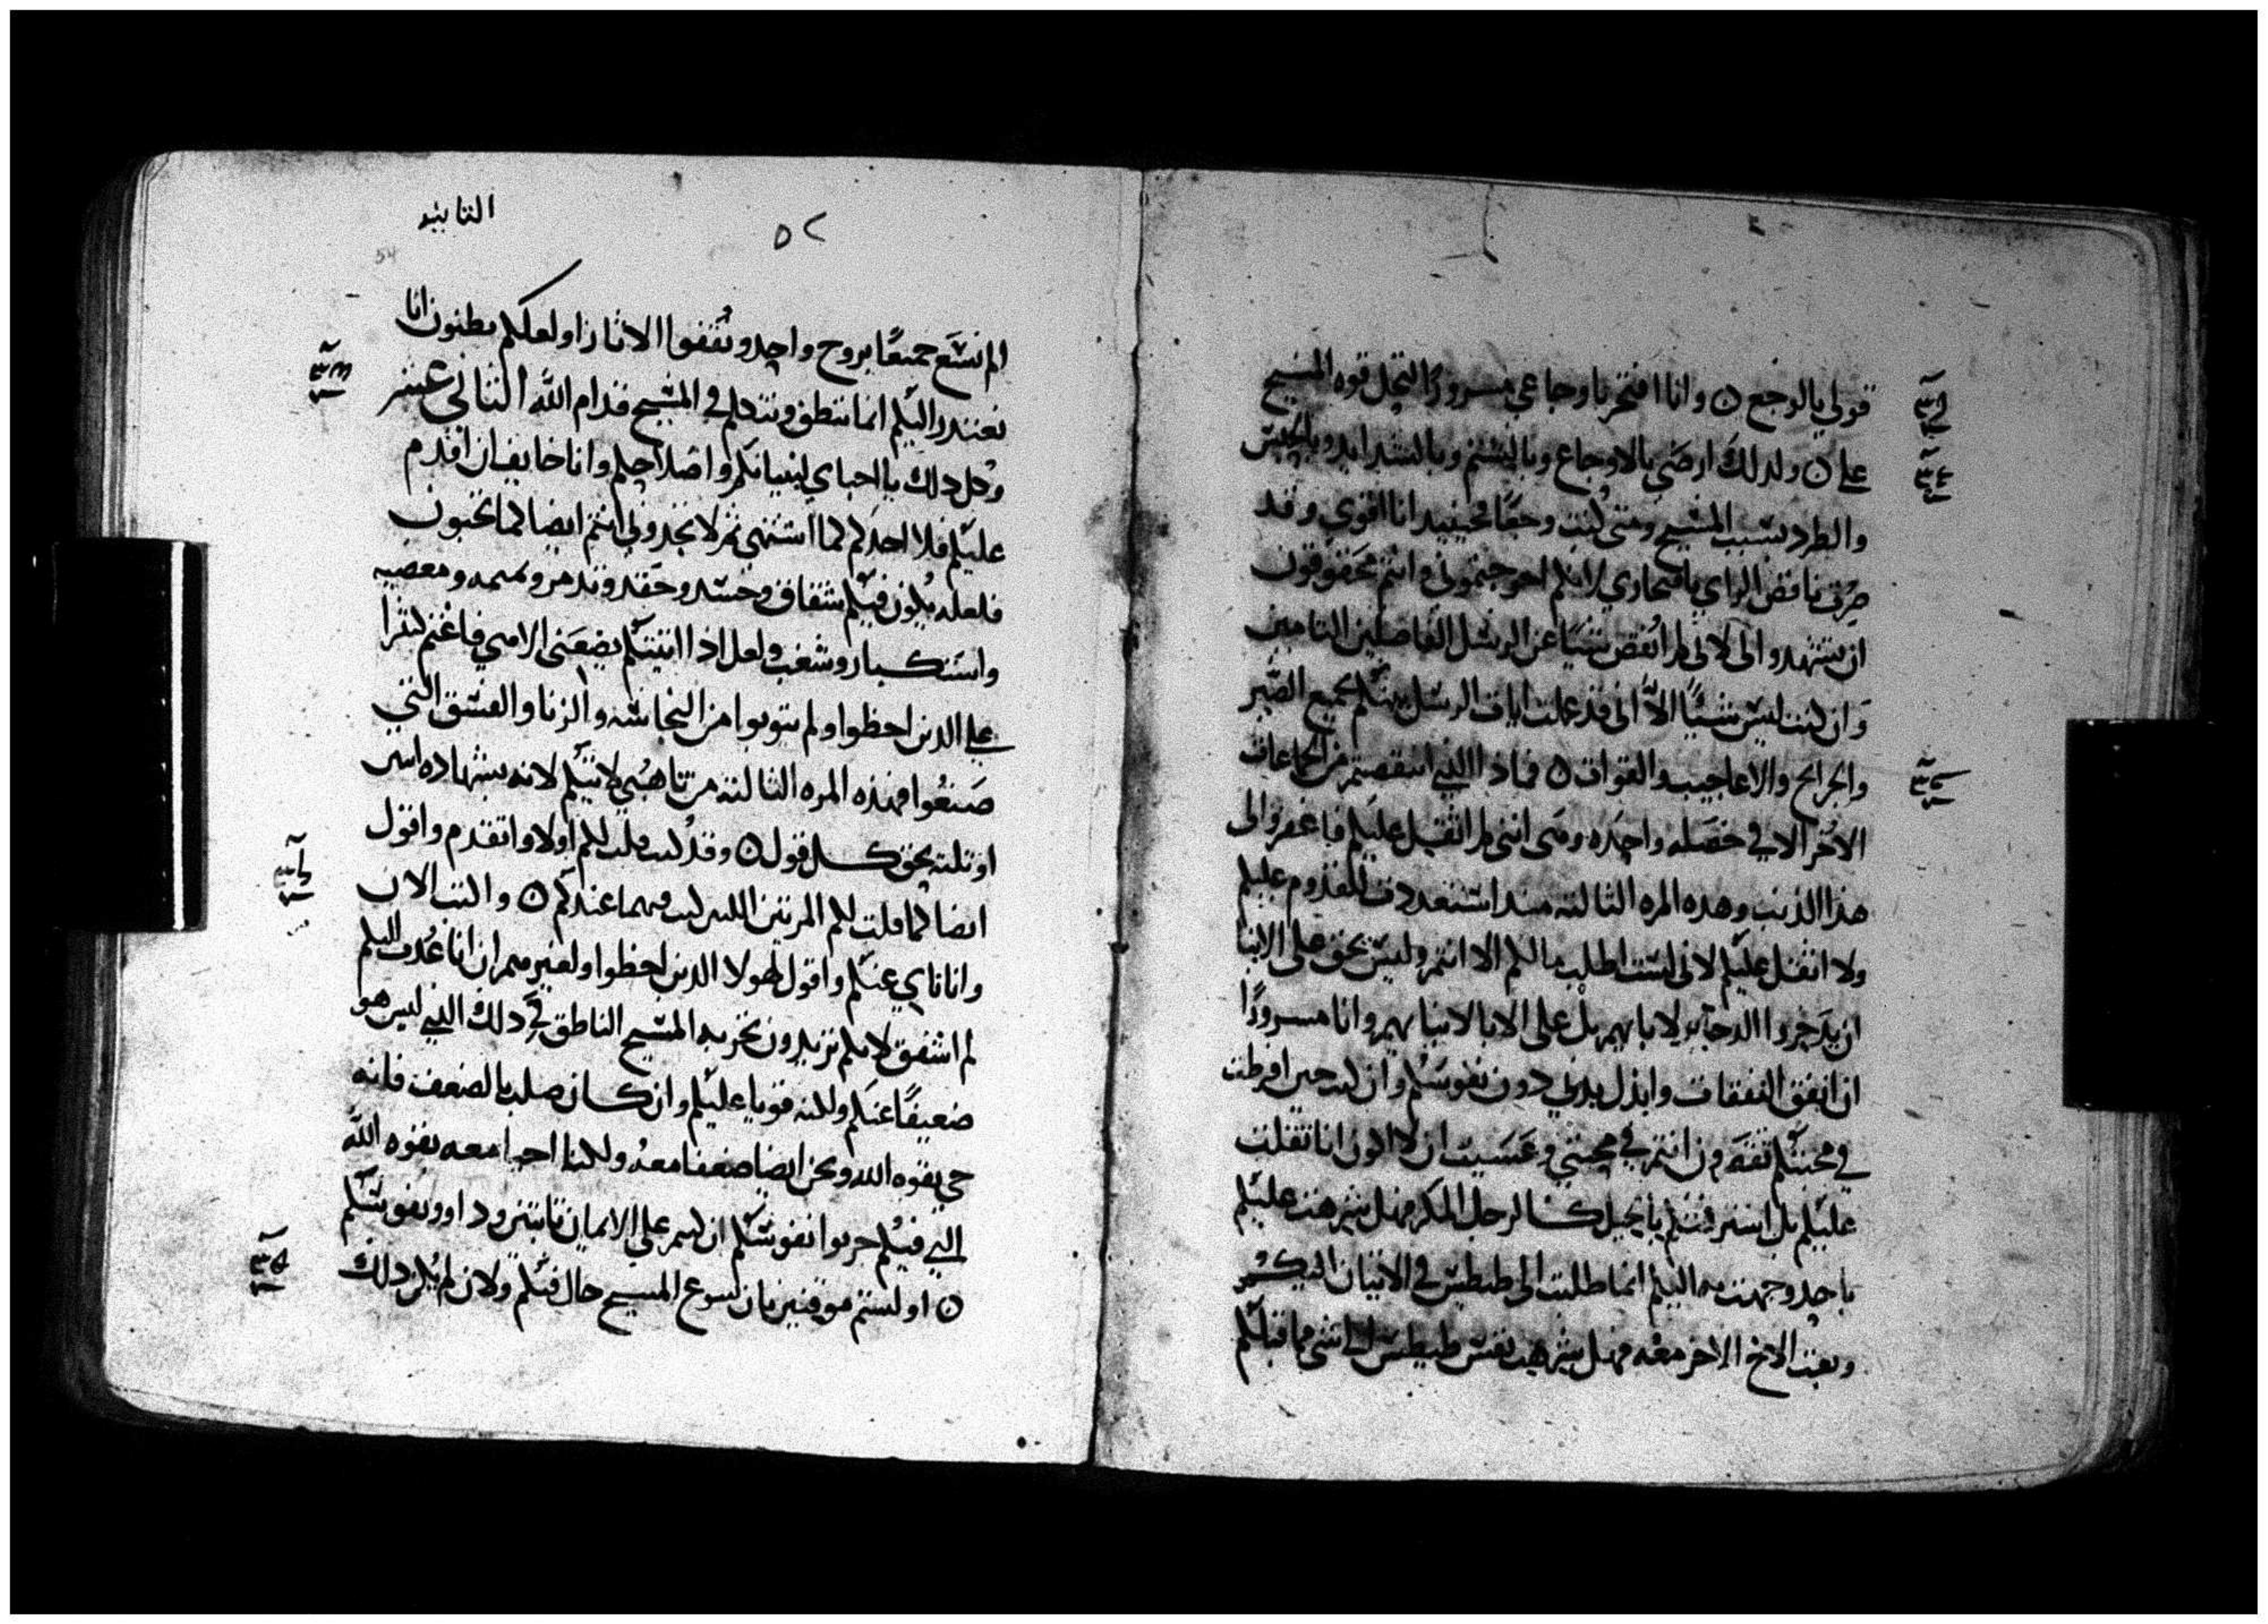 قوتي بالوجع ۞ وانا افتخر باوجاعي مسرورًا لتحل قوه المسيح
علي ۞ ولدلك ارضي بالاوجاع وبالشتم وبالشدايد وبالحبس
والطرد بسبب المسيح ومتى كنت وجعًا فحينيد انا اقوي وقد
صرت ناقض الراي بافتخاري لانكم احوجتموني وانتم محقوقون
ان تشهدوا لى لاني لم انقص شيًا عن الرسل الفاضلين التامين
وان كنت ليس شيًا الا انى قد عملت ايات الرسل بينكم بجميع الصبر
والجرايح والاعاجيب والقوات ۞ فماذا الدي انتقصتم من الجماعات
الاخر الا في خصله واحده ومى انني لم اثقل عليكم فاغفروا لى
هذا الذنب وهده المره الثالثه مند استعددت للقدوم عليكم
ولا اثقل عليكم لاني لست اطلب مالكم الا انتم وليس يحق على الابنا
ان يدخروا الدخاير لابايهم بل على الابا لابنايهم وانا مسرورًا
ان انفق النفقات وابدل بدني دون نفوسكم وان كنت حين افرطت
في محبتكم تقصرون انتم في محبتي وعسيت ان لا اكون انا تقلت
عليكم بل استرقتكم بالحيل كالرجل المكر فهل شرهت عليكم
باحد وجهت به اليكم انما طلبت الى طيطس في الاتيان اليكم
وبعثت الاخ الاخر معه فهل شرهت نفس طيطس الى شي مما قبلكم
التانيه
٥٢
54
الم نسع جميعًا بروح واحد ونقفوا الاثار اولعلكم تطنون انا
نعتدر اليكم انما ننطق ونتكلم في المسيح قدام الله التاني عشر
وكل دلك يا احباي لبنيانكم واصلاحكم وانا خايف ان اقدم
عليكم فلا اجدكم كما اشتهي ثم لا تجدوني انتم ايضا كما تحبون
فلعله يكون فيكم شقاق وحسد وحقد وتدمر ونميمه ومعصيه
واستكبار وشغب ولعل ادا اتيتكم يضعني الاهي فاغتم كثيرا
علي الدين اخطوا ولم يتوبوا من النجاسه والزنا والفسق التي
صنعوا فهذه المره الثالثه من تاهبي لاتيكم لانه بشهاده اتنين
اوتلته يحق كل قول ۞ وقد كنت قلت لكم اولا واتقدم واقول
ايضا كما قلت لكم المرتين اللتين كنت فيهما عندكم ۞ واكتب الان
وانا ناي عنكم واقول لهولا الدين اخطوا ولغيرهم ان انا عدت اليكم
لم اشفق لانكم تريدون تجربه المسيح الناطق في دلك الدي ليس هو
ضعيفًا عنكم ولكنه قويا عليكم وان كان صلب بالضعف فانه
حي بقوه الله ونحن ايضا ضعفا معه ولكنا احيا معه بقوه الله
التي فيكم جربوا نفوسكم ان كنتم علي الايمان تابتين وداووا نفوسكم
۞ اولستم موقنين بان يسوع المسيح حال فيكم ولان لم يكن دلك